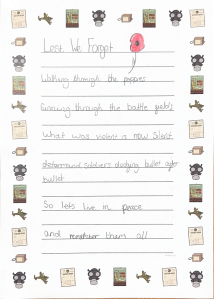 Lest We Forget
Walking through the poppies
Growing through the battle fields
what was violent is now silent
determined soldiers dodging bullet after
bullet
So lets live in peace
and remember them all